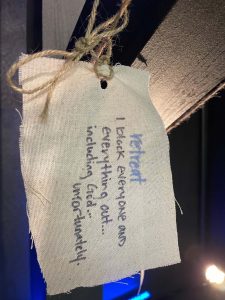 retreat
I block everyone and
everything out...
including God...
unfortunately.